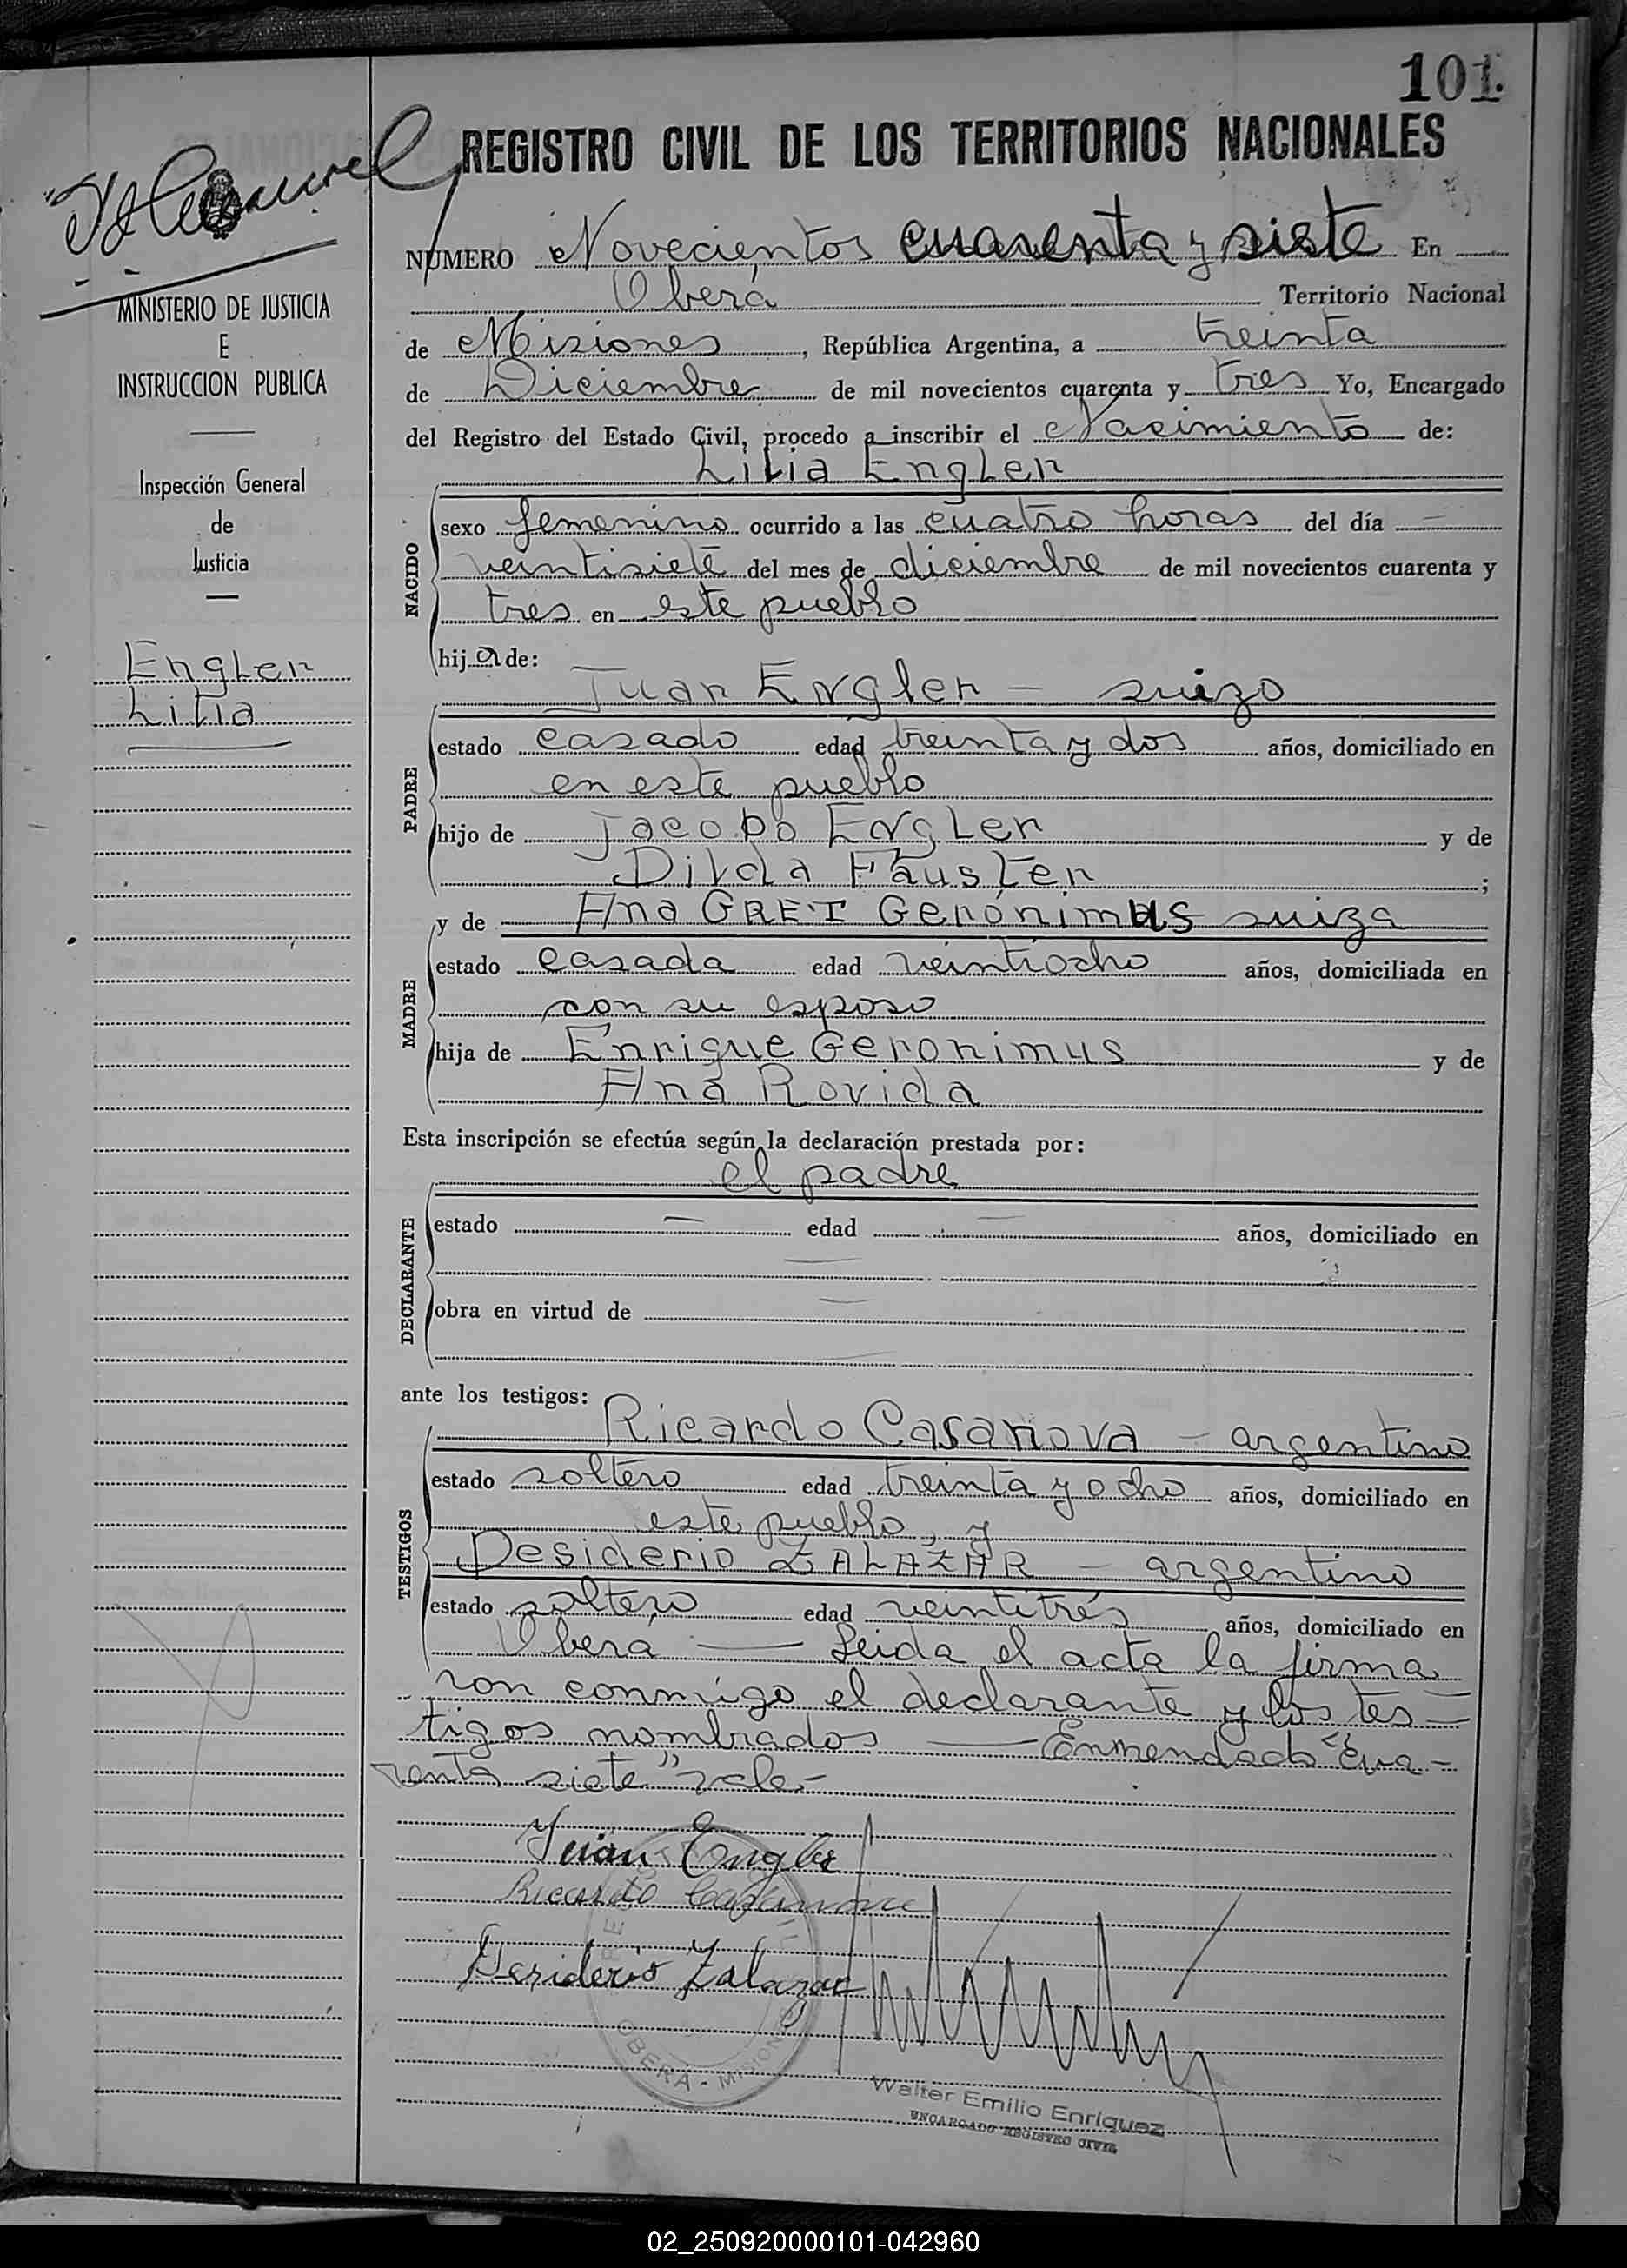 101.
REGISTRO CIVIL DE LOS TERRITORIOS NACIONALES
NUMERO Novecientos cuarenta y siete En
Oberá Territorio Nacional
de Misiones, República Argentina, a treinta
de Diciembre de mil novecientos cuarenta y tres Yo, Encargado
del Registro del Estado Civil, procedo a inscribir el Nacimiento de:
Lilia Engler
NACIDO
sexo femenino ocurrido a las cuatro horas del día —
veintisiete del mes de diciembre de mil novecientos cuarenta y
tres en este pueblo
hija de:
Juan Engler — suizo
PADRE
estado casado edad treinta y dos años, domiciliado en
en este pueblo
hijo de Jacobo Engler y de
Dilda ;
y de Ana GRET Gerónimus suiza
MADRE
estado casada edad veintiocho años, domiciliada en
con su esposo
hija de Enrique Geronimus y de
Ana Rovida
Esta inscripción se efectúa según la declaración prestada por:
el padre
DECLARANTE
estado — edad — años, domiciliado en
—
obra en virtud de —
ante los testigos:
Ricardo Casanova — argentino
TESTIGOS
estado soltero edad treinta y ocho años, domiciliado en
este pueblo, y
Desiderio ZALAZAR — argentino
estado soltero edad veintitrés años, domiciliado en
Oberá — Leida el acta la firma
ron conmigo el declarante y los tes—
tigos nombrados — Enmendado "cua-
renta siete" vale.-
Juan Engler
Ricardo Casanova
Desiderio Zalazar
OBERÁ - MISIONES
Walter Emilio Enriquez
ENCARGADO REGISTRO CIVIL
MINISTERIO DE JUSTICIA
E
INSTRUCCION PUBLICA
Inspección General
de
Justicia
Engler
Lilia
02_250920000101-042960